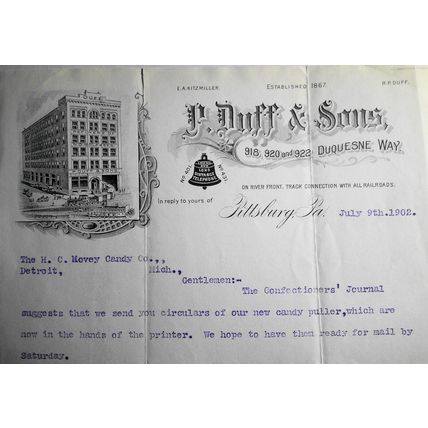 E.A.KITZMILLER.
ESTABLISHED 1867.
R.P. DUFF.
DUFF
P. Duff & Sons,
918, 920 and 922 DUQUESNE WAY.
LOCAL AND LONG DISTANCE TELEPHONE
No 401
No 431.
ON RIVER FRONT. TRACK CONNECTION WITH ALL RAILROADS.
In reply to yours of
Pittsburg, Pa. July 9th.1902.
The H. C. Movey Candy Co.,,
Detroit, Mich.,
Gentlemen:-
The Confectioners' Journal
suggests that we send you circulars of our new candy puller,which are
now in the hands of the printer. We hope to have them ready for mail by
Saturday.